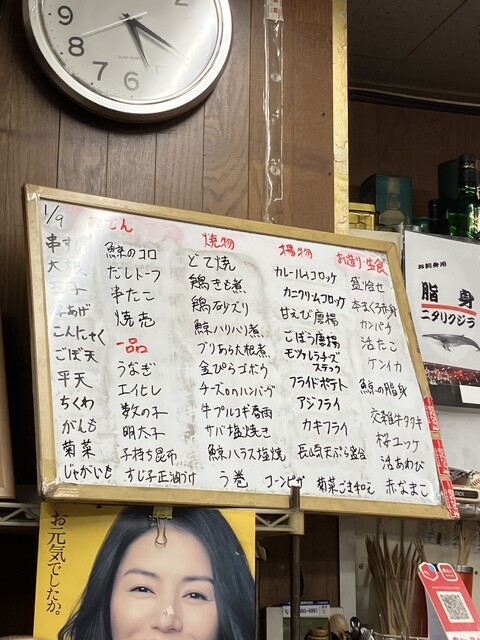 9
8
7
6
5
4
1/9
おでん
串すじ
大根
玉子
こんにゃく
ごぼ天
平天
ちくわ
がんも
菊菜
じゃがいも
鯨のコロ
だしトーフ
串たこ
焼売
一品
うなぎ
エイヒレ
数の子
明太子
子持ち昆布
すじ子正油づけ
焼物
どて焼
鶏きも煮
鶏砂ズリ
鯨ハリハリ煮
ブリあら大根煮
金ぴらゴボウ
チーズonハンバーグ
牛プルコギ春雨
サバ塩焼き
鯨ハラス塩焼
う巻
コーンピザ
揚物
カレールムコロッケ
カニクリームコロッケ
甘えび唐揚
ごぼう唐揚
モッツァレラチーズ
スティック
フライドポテト
アジフライ
カキフライ
長芋天ぷら盛合
菊菜ごま和え
お造り・生食
盛り合せ
本まぐろ赤身
カンパチ
活たこ
ケンイカ
鯨の脂身
交雑牛タタキ
桜ユッケ
活あわび
赤なまこ
お刺身用
脂身
ニタリクジラ
お元気でしたか。